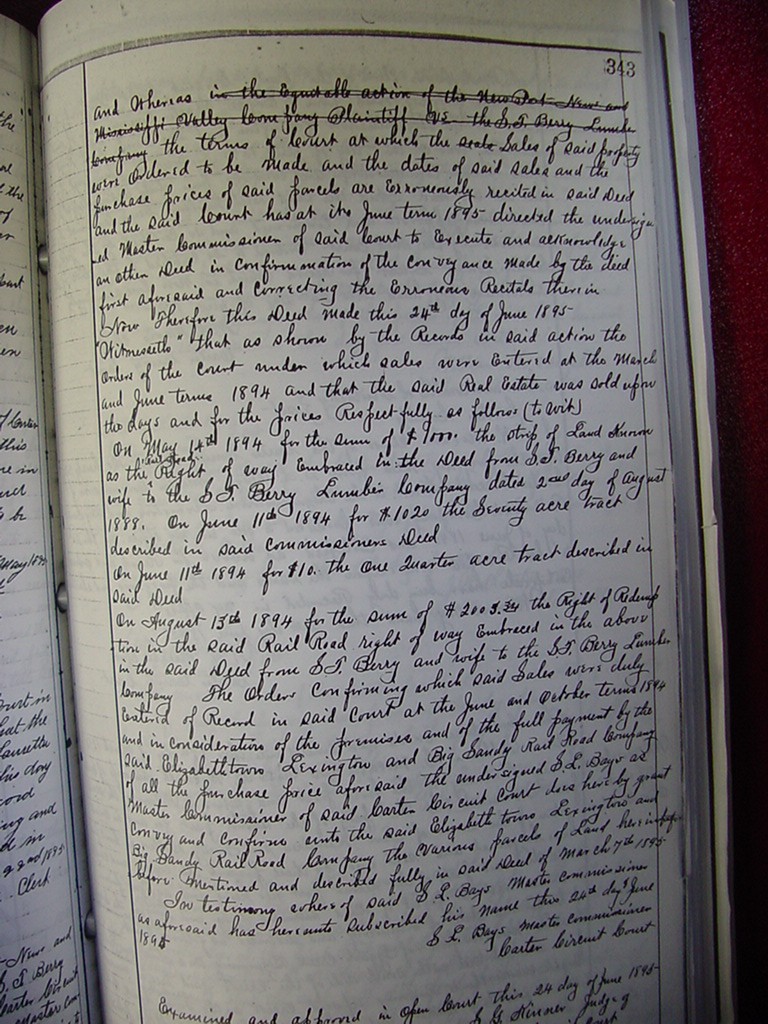 343
and Whereas in the Equitable action of the New Port News and
Mississippi Valley Company Plaintiff VS. the S.T. Berry Lumber
Company the terms of Court at which the Sales of said property
were Ordered to be made and the dates of said sales and the
purchase prices of said parcels are Erroneously recited in said Deed
and the said Court has at its June term 1895 directed the undersign
ed Master Commissioner of said Court to Execute and acknowledge
an other Deed in confirmation of the conveyance made by the deed
first aforesaid and correcting the Erroneous Recitals therein
Now Therefore this Deed made this 24th day of June 1895
"Witnesseth" that as shown by the Records in said action the
orders of the court under which sales were Entered at the March
and June terms 1894 and that the said Real Estate was sold upon
the days and for the prices Respectfully as follows (to wit)
On May 14th 1894 for the sum of $1000. the strip of Land Known
as the Rail Road Right of way Embraced in the Deed from S.T. Berry and
wife to the S.T. Berry Lumber Company dated 2nd day of August
1888. On June 11th 1894 for $1020 the Seventy acre tract
described in said commissioners Deed
On June 11th 1894 for $10. the One Quarter acre tract described in
said Deed
On August 13th 1894 for the sum of $2003.34 the Right of Redemp
tion in the said Rail Road right of way Embraced in the above
in the said Deed from S.T. Berry and wife to the S.T. Berry Lumber
Company The Orders Confirming which said Sales were duly
Entered of Record in said Court at the June and October terms 1894
and in consideration of the premises and of the full payment by the
said Elizabethtown Lexington and Big Sandy Rail Road Company
of all the purchase price aforesaid the undersigned S.L. Bays as
Master Commissioner of said Carter Circuit Court does hereby grant
convey and confirm unto the said Elizabethtown Lexington and
Big Sandy Rail Road Company the various parcels of Land herein
before mentioned and described fully in said Deed of March 7th 1895
In testimony whereof said S.L. Bays Master commissioner
as aforesaid has hereunto subscribed his name this 24th day of June
1895
S L Bays Master commissioner
Carter Circuit Court
Examined and approved in open Court this 24 day of June 1895
S. G. Kinner Judge of
Court